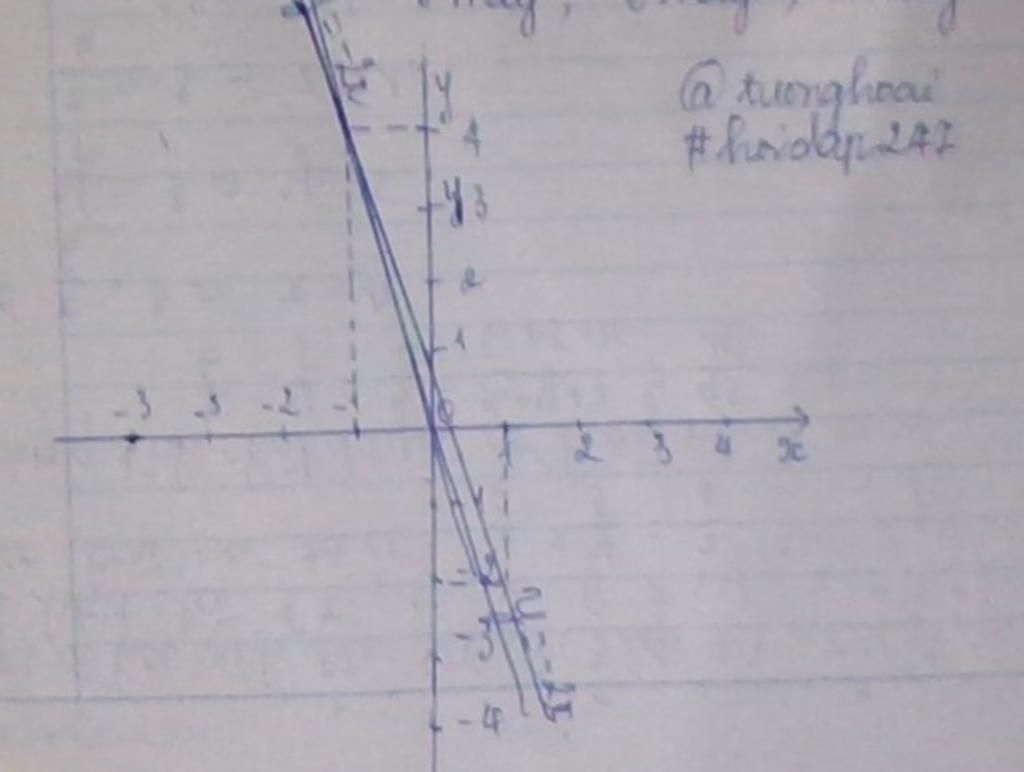 y
@ tuonghoai
4
#hoidap247
y 3
2
1
-3 -3 -2 -1 0
1 2 3 4 x
-2
-3
-4